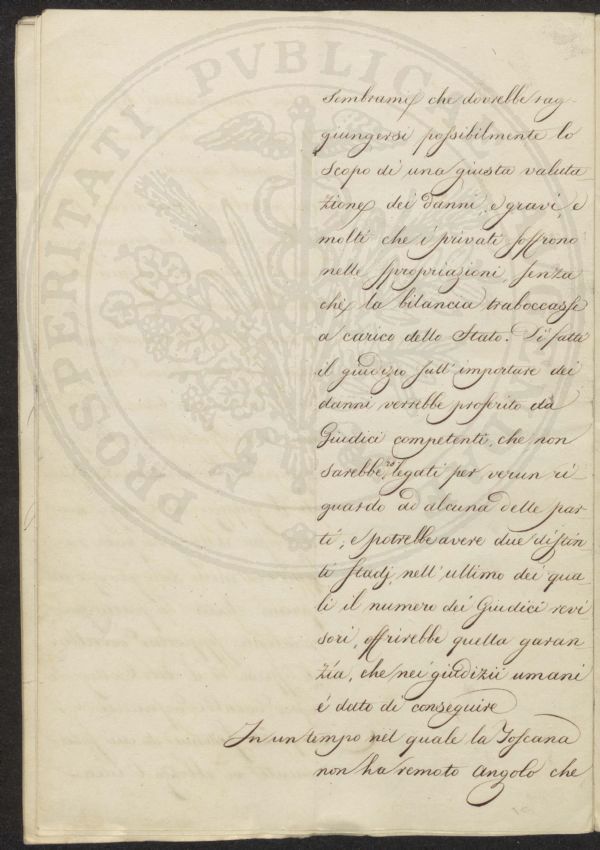 PROSPERITATI PVBLICAE
Sembrami che dovrebbe rag-
giungersi possibilmente lo
scopo di una giusta valuta
zione dei danni, e gravi, e
molti che i privati soffrono
nelle spropriazioni, senza
che la bilancia traboccasse
a carico dello Stato. Di fatti
il giudizio sull' importare dei
danni verrebbe proferito da
Giudici competenti, che non
sarebbero legati per verun ri
guardo ad alcuna delle par
ti, e potrebbe avere due distin
ti stadj, nell' ultimo dei qua
li il numero dei Giudici revi
sori, offrirebbe quella garan
zía, che nei giudizii umani
é dato di conseguire
In un tempo nel quale la Toscana
non ha remoto angolo che